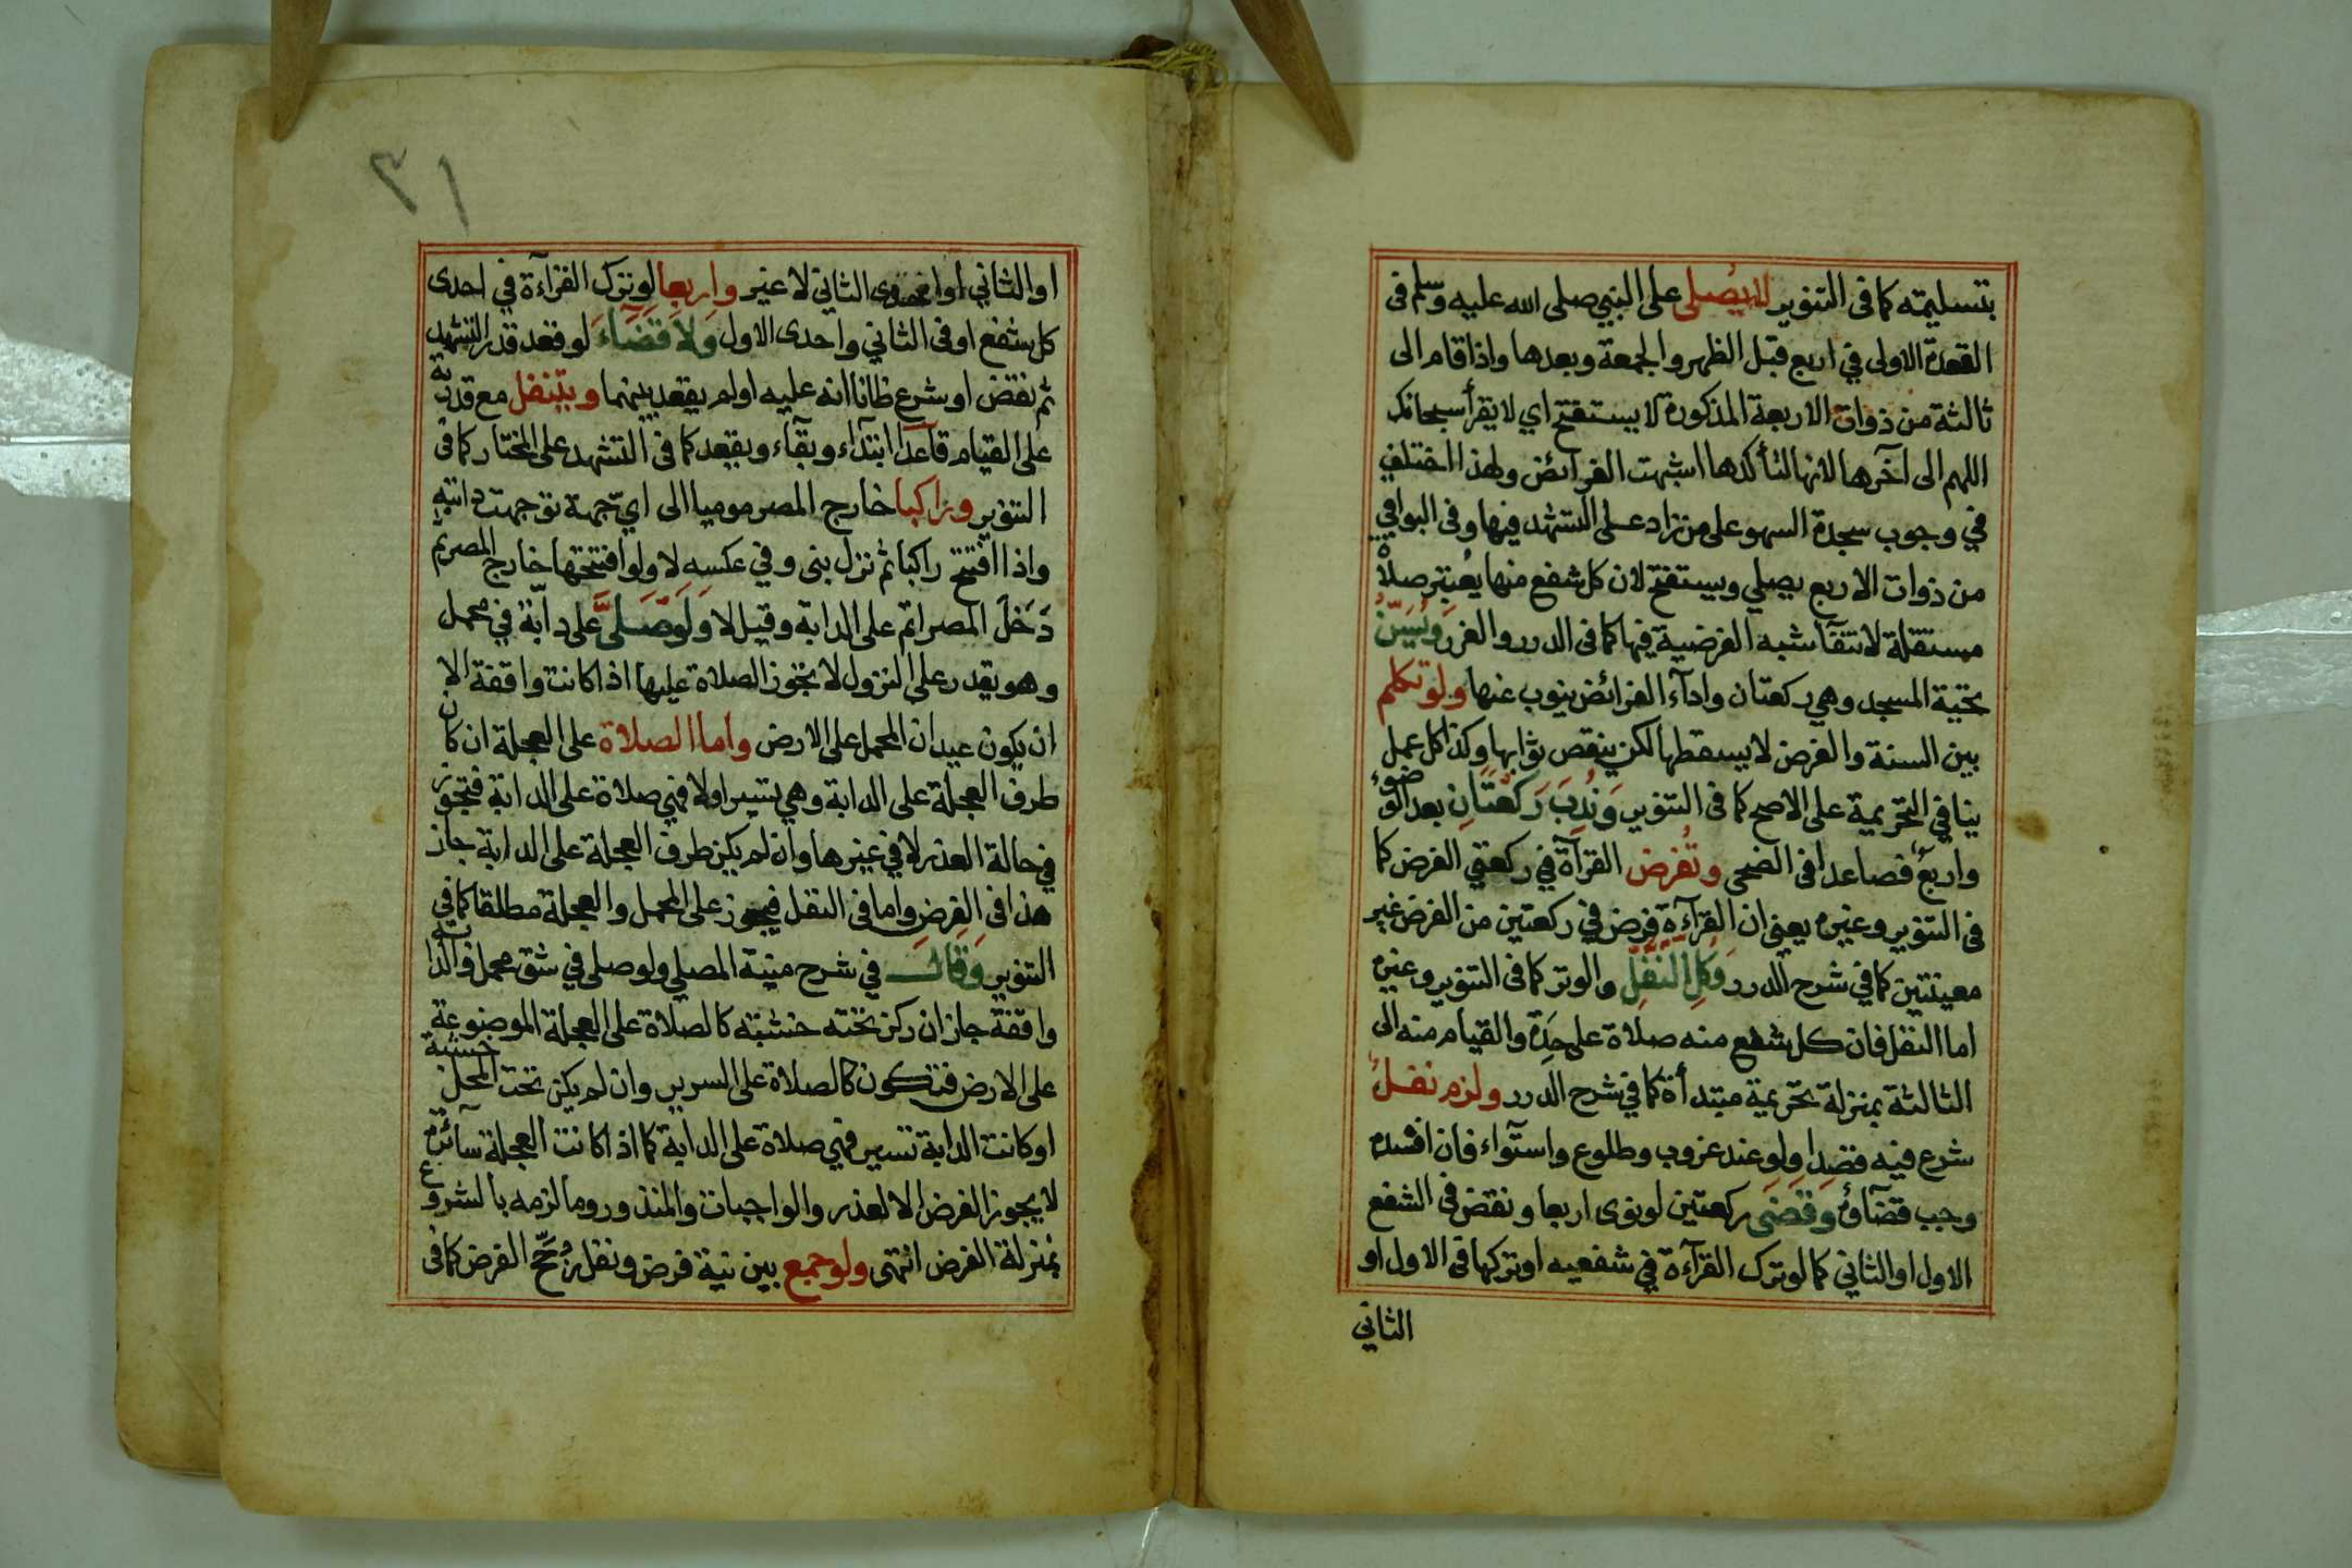 بتسليمته كما فى التنوير لا يصلى على النبي صلى الله عليه وسلم فى
القعدة الاولى في اربع قبل الظهر والجمعة وبعدها واذا قام الى
ثالثة من ذوات الاربعة المذكورة لا يستفتح اي لا يقرأ سبحانك
اللهم الى آخرها لانها لتأكدها اشبهت الفرائض ولهذا اختلف
في وجوب سجدة السهو على من زاد على التشهد فيها وفى البواقي
من ذوات الاربع يصلي ويستفتح لان كل شفع منها يعتبر صلاة
مستقلة لانتفآ شبه الفرضية فيها كما فى الدرر والغرر ويسن
تحية المسجد وهي ركعتان وادآء الفرائض ينوب عنها ولو تكلم
بين السنة والفرض لا يسقطها لكن ينقص ثوابها وكذا كل عمل
ينافي التحريمة على الاصح كما فى التنوير وندب ركعتان بعد الوضوء
واربع فصاعدا فى الضحى وتفرض القرآة في ركعتي الفرض كما
فى التنوير وغيره يعني ان القرآءة فرض في ركعتين من الفرض غير
معينتين كما في شرح الدرر وكل النفل والوتر كما فى التنوير وغيره
اما النفل فان كل شفع منه صلاة على حدة والقيام منه الى
الثالثة بمنزلة تحريمة مبتدأة كما في شرح الدرر ولزم نفل
شرع فيه قصدا ولو عند غروب وطلوع واستوآء فان افسده
وجب قضآؤه وقضى ركعتين لو نوى اربعا ونقض فى الشفع
الاول او الثاني كما لو ترك القرآءة في شفعيه او تركها فى الاول او
الثاني
٣١
او الثاني او احدى الثاني لا غير واربعا لو ترك القرآءة في احدى
كل شفع او فى الثاني واحدى الاول ولا قضآء لو قعد قدر التشهد
ثم نقض او شرع ظانا انه عليه او لم يقعد بينهما ويتنفل مع قدرته
على القيام قاعدا ابتدآء وبقآء ويقعد كما فى التشهد على المختار كما فى
التنوير وراكبا خارج المصر موميا الى اي جهة توجهت دابته
واذا افتتح راكبا ثم نزل بنى وفي عكسه لا ولو افتتحها خارج المصر ثم
دخل المصر اتم على الدابة وقيل لا ولو صلى على دابة في محمل
وهو يقدر على النزول لا تجوز الصلاة عليها اذا كانت واقفة الا
ان يكون عيدان المحمل على الارض واما الصلاة على العجلة ان كان
طرف العجلة على الدابة وهي تسير او لا فهي صلاة على الدابة فتجوز
في حالة العذر لا في غيرها وان لم يكن طرف العجلة على الدابة جاز
هذا فى الفرض واما فى النفل فيجوز على المحمل والعجلة مطلقا كما في
التنوير وقال في شرح منية المصلي ولو صلى في شق محمل والدابة
واقفة جاز ان ركز تحته خشبته كالصلاة على العجلة الموضوعة
على الارض فتكون كالصلاة على السرير وان لم يكن تحت المحل خشبة
او كانت الدابة تسير فهي صلاة على الدابة كما اذا كانت العجلة سآئرة
لا يجوز الفرض الا لعذر والواجبات والمنذور وما لزمه بالشروع
بمنزلة الفرض انتهى ولو جمع بين نية فرض ونفل رجح الفرض كما فى